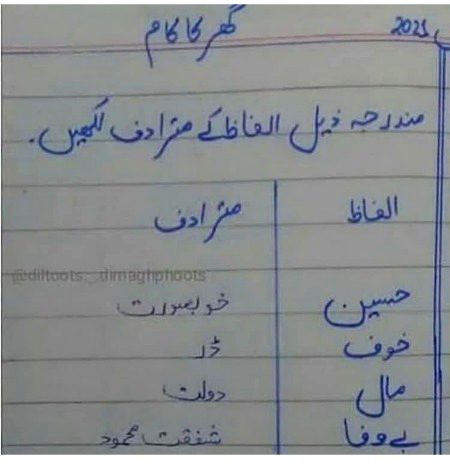 2021
گھر کا کام
مندرجہ ذیل الفاظ کے مترادف لکھیں۔
الفاظ مترادف
@diltoots_dimaghphoots
حسین خوبصورت
خوف ڈر
مال دولت
بے وفا شفقت محمود